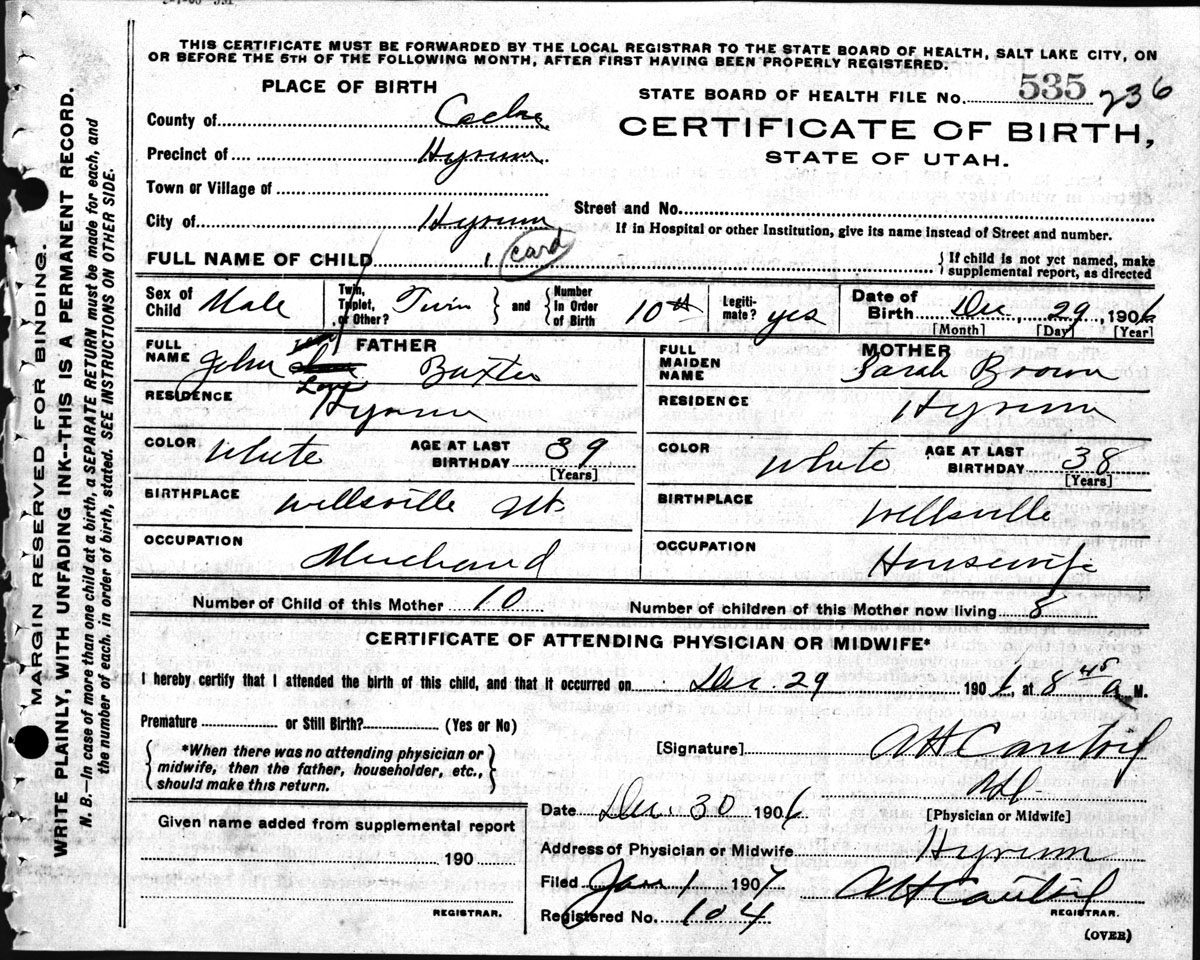 THIS CERTIFICATE MUST BE FORWARDED BY THE LOCAL REGISTRAR TO THE STATE BOARD OF HEALTH, SALT LAKE CITY, ON
OR BEFORE THE 5TH OF THE FOLLOWING MONTH, AFTER FIRST HAVING BEEN PROPERLY REGISTERED.
PLACE OF BIRTH
STATE BOARD OF HEALTH FILE No. 535 236
County of Cache
CERTIFICATE OF BIRTH,
Precinct of Hyrum
STATE OF UTAH.
Town or Village of
Street and No.
City of Hyrum
If in Hospital or other Institution, give its name instead of Street and number.
FULL NAME OF CHILD 1 card
{ If child is not yet named, make supplemental report, as directed
Sex of Child Male Twin, Triplet, or Other? Twin } and { Number in Order of Birth 10th Legitimate? yes Date of Birth Dec, 29, 1906
[Month] [Day] [Year]
FULL NAME FATHER John Baxter
FULL MAIDEN NAME MOTHER Sarah Brown
RESIDENCE Hyrum
RESIDENCE Hyrum
COLOR White AGE AT LAST BIRTHDAY 39 [Years]
COLOR White AGE AT LAST BIRTHDAY 38 [Years]
BIRTHPLACE Wellsville Ut
BIRTHPLACE Wellsville
OCCUPATION Merchand
OCCUPATION Housewife
Number of Child of this Mother 10 Number of children of this Mother now living 8
CERTIFICATE OF ATTENDING PHYSICIAN OR MIDWIFE*
I hereby certify that I attended the birth of this child, and that it occurred on Dec. 29 1906, at 8 45 a M.
Premature or Still Birth? (Yes or No)
{ *When there was no attending physician or midwife, then the father, householder, etc., should make this return. }
[Signature]
Date Dec. 30 1906
[Physician or Midwife]
Given name added from supplemental report
Address of Physician or Midwife Hyrum
190
Filed Jan 1 1907
REGISTRAR.
Registered No. 104
REGISTRAR.
(OVER)
MARGIN RESERVED FOR BINDING.
WRITE PLAINLY, WITH UNFADING INK--THIS IS A PERMANENT RECORD.
N. B.—In case of more than one child at a birth, a SEPARATE RETURN must be made for each, and
the number of each. in order of birth, stated. SEE INSTRUCTIONS ON OTHER SIDE.